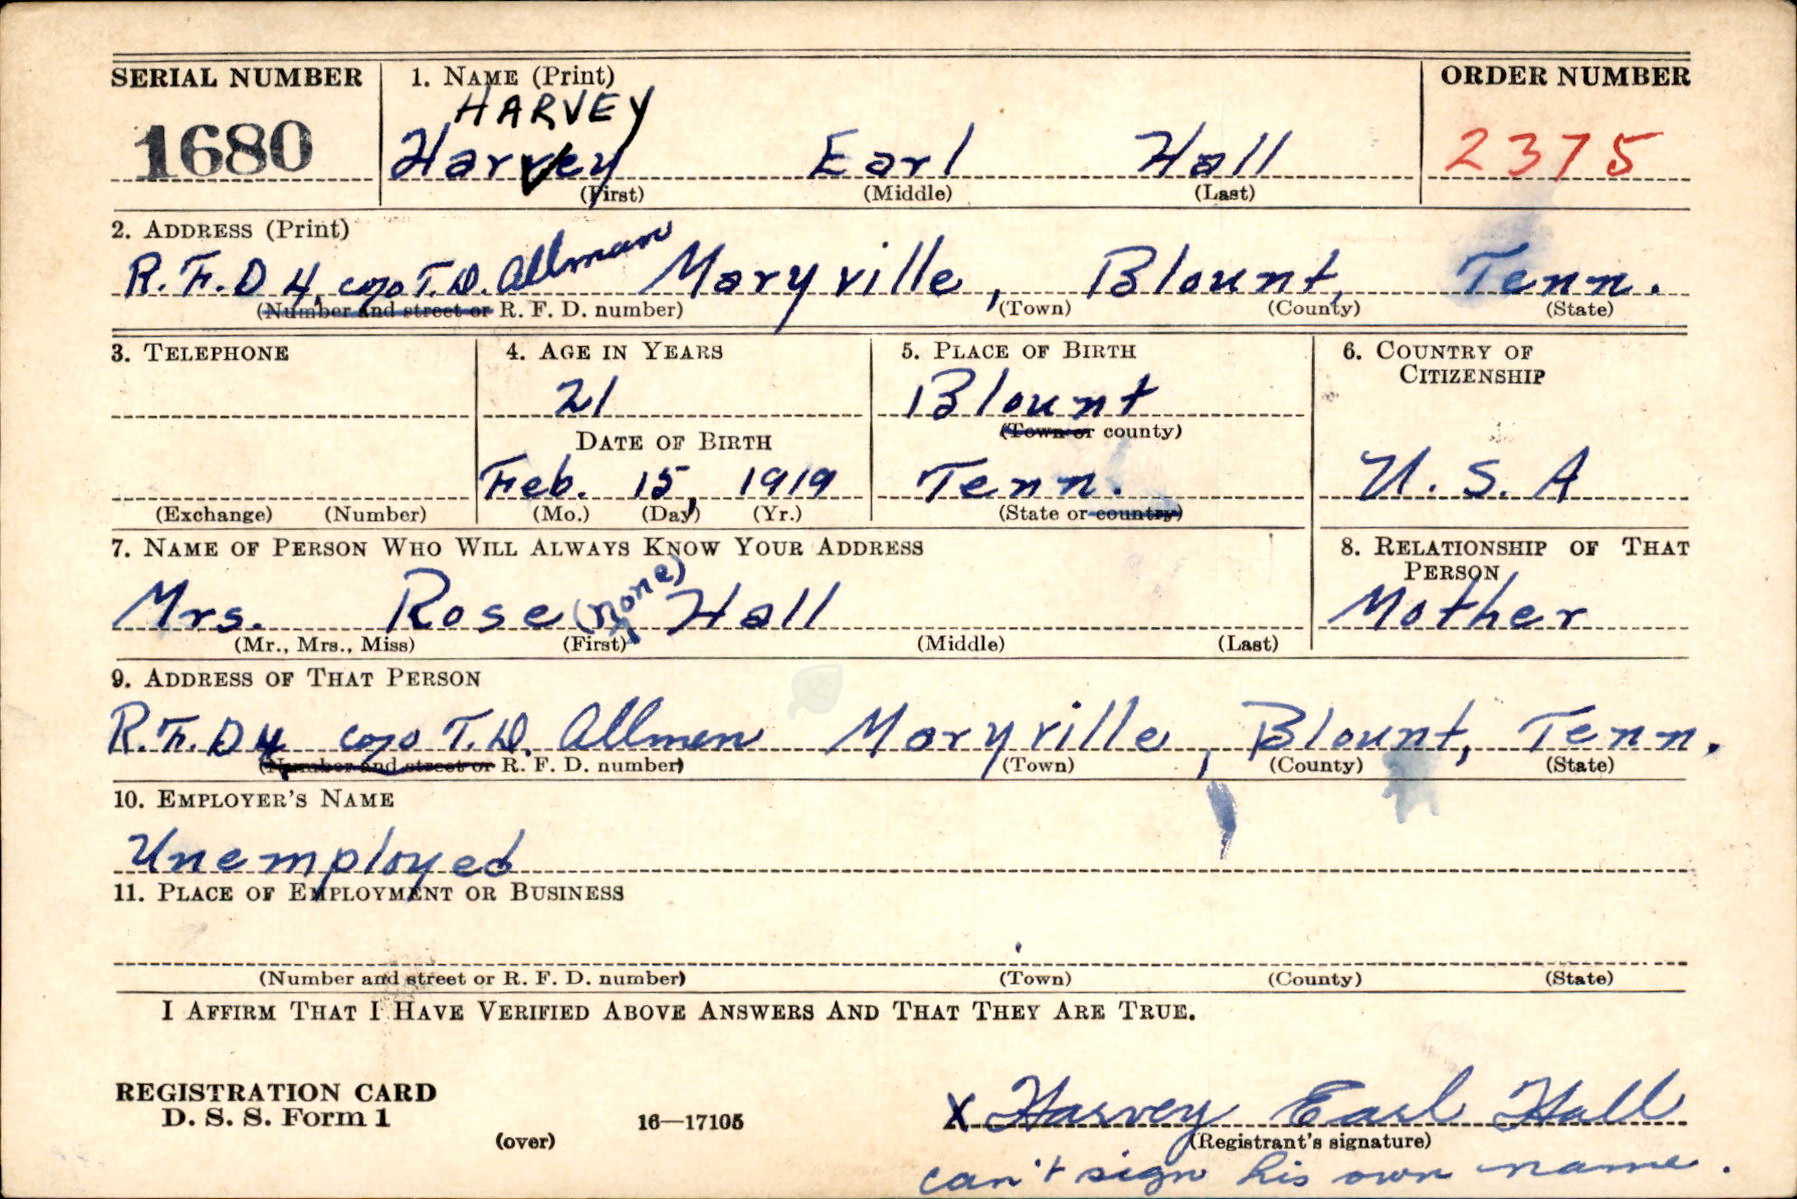 SERIAL NUMBER 1. NAME (Print) ORDER NUMBER
HARVEY
1680 Harvey Earl Hall 2375
(First) (Middle) (Last)
2. ADDRESS (Print)
R.F.D 4, c/o T.D. Allman Maryville, Blount, Tenn.
(Number and street or R. F. D. number) (Town) (County) (State)
3. TELEPHONE 4. AGE IN YEARS 5. PLACE OF BIRTH 6. COUNTRY OF
CITIZENSHIP
21 Blount
(Town or county)
DATE OF BIRTH
Feb. 15, 1919 Tenn. U. S. A
(Exchange) (Number) (Mo.) (Day) (Yr.) (State or country)
7. NAME OF PERSON WHO WILL ALWAYS KNOW YOUR ADDRESS 8. RELATIONSHIP OF THAT
PERSON
Mrs. Rose (none) Hall Mother
(Mr., Mrs., Miss) (First) (Middle) (Last)
9. ADDRESS OF THAT PERSON
R.F.D 4 c/o T.D. Allmen Maryville, Blount, Tenn.
(Number and street or R. F. D. number) (Town) (County) (State)
10. EMPLOYER'S NAME
Unemployed
11. PLACE OF EMPLOYMENT OR BUSINESS
(Number and street or R. F. D. number) (Town) (County) (State)
I AFFIRM THAT I HAVE VERIFIED ABOVE ANSWERS AND THAT THEY ARE TRUE.
REGISTRATION CARD
D. S. S. Form 1 16—17105 X Harvey Earl Hall
(over) (Registrant's signature)
can't sign his own name.